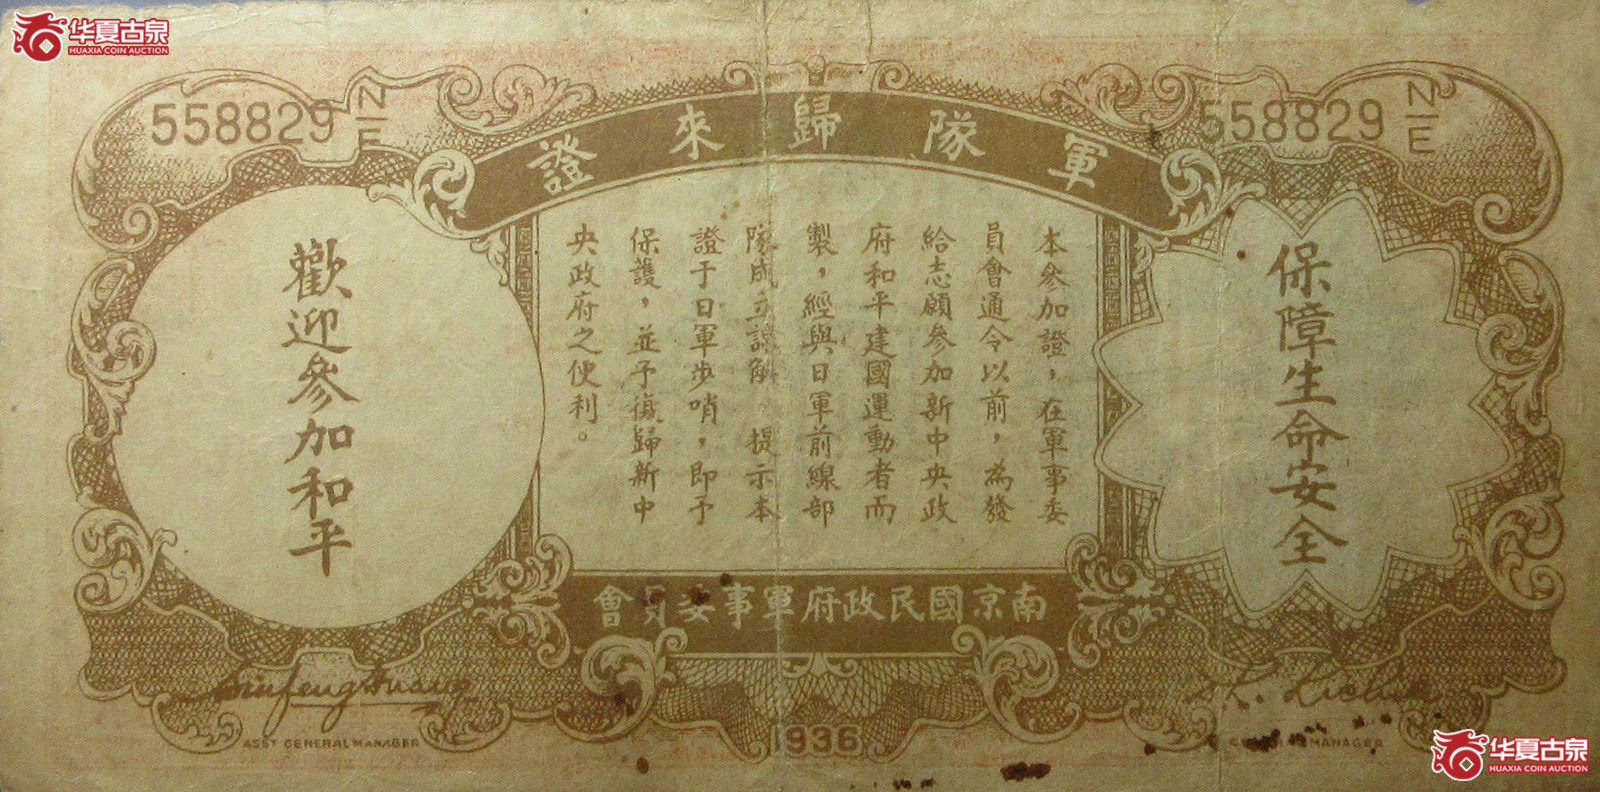 华夏古泉
HUAXIA COIN AUCTION
558829 N/E
558829 N/E
軍隊歸來證
保障生命安全
本參加證，在軍事委
員會通令以前，為發
給志願參加新中央政
府和平建國運動者而
製，經與日軍前線部
隊成立諒解，提示本
證于日軍步哨，即予
保護，並予復歸新中
央政府之便利。
歡迎參加和平
南京國民政府軍事委員會
ASST GENERAL MANAGER
1936
GENERAL MANAGER
华夏古泉
HUAXIA COIN AUCTION